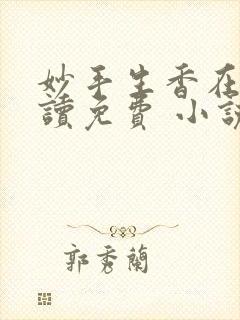 妙手生香在
讀免費 小說
郭秀蘭